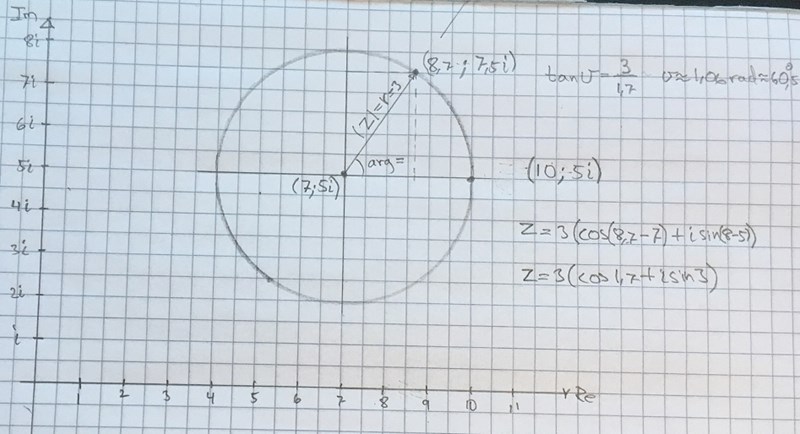 Im
8i
7i
6i
5i
4i
3i
2i
i
(8,7 ; 7,5i)
|z|=r=3
arg=
(7;5i)
tan v = 3/1,7 v≈1,06 rad≈60,5°
(10;5i)
z=3(cos(8,7-7)+i sin(8-5))
z=3(cos1,7+i sin3)
1 2 3 4 5 6 7 8 9 10 11 Re